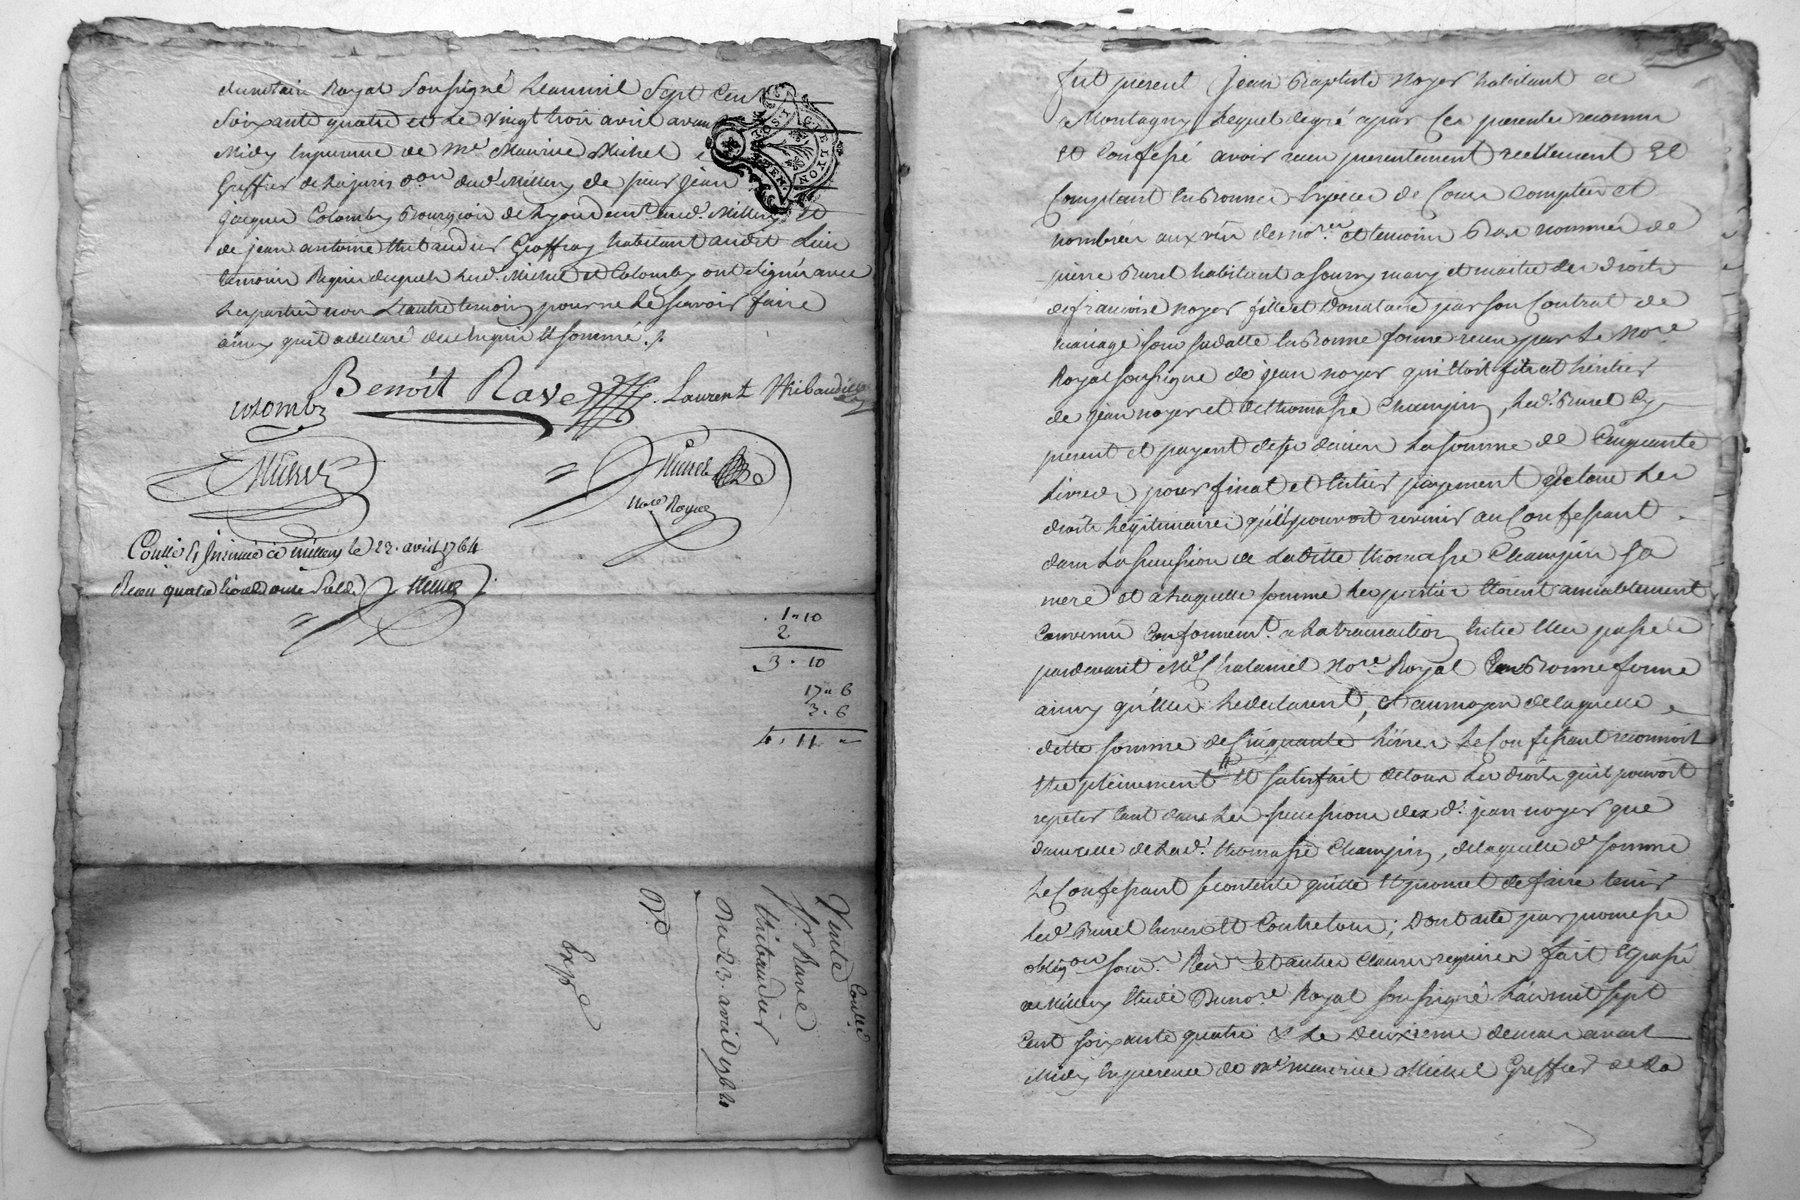 du notaire Royal Soussigné L'an mil Sept Cent
Soixante quatre et Le vingt trois avril avant
Midy En presence de Me Maurice Michel
Greffier de La juris.on dud. Millery de sieur Jean
jacques Colomby Bourgeois de Lyon demt. aud. Millery Et
de jean antoine thibaudier Geoffray habitant audit Lieu
temoins Requis desquels Led. Michel et Colomby ont signés avec
Les parties non L'autre temoin pour ne Le scavoir faire
ainsy qu'il a declaré de ce Enquis Et sommé ./.
Benoit Rave Laurent thibaudier
Colomby
Michel
Not.e Royal
Collé & Insinué à millery le 23. avril 1764
Reçu quatre livres onze sols
1 " 10
2
3 . 10
17 " 6
3 . 6
4 . 11 "
Vente
Collé
Sr. Rave
thibaudier
Du 23. avril 1764
Expe
fut present jean Baptiste noyer habitant a
Montagny Lequel de gré a par Ces presentes reconnu
Et Confessé avoir receu presentement reellement Et
Comptant En Bonnes Especes de Cours Comptées et
nombrées aux vües des no.re et temoins Bas nommés de
pierre Burel habitant a sourcy mary et maitre des droits
de francoise noyer fille et donataire par son Contrat de
mariage sous sa datte En Bonne forme receu par Le No.re
Royal soussigné de jean noyer qui Etoit fils et héritier
de jean noyer et de thomasse Champin, Led. Burel Cy
present et payant de ses deniers La somme de Cinquante
Livres pour final et Entier payement de tous Les
droits Légitimaires qu'il pouvoit revenir au Confessant
dans La succession de Laditte thomasse Champin sa
mere et a Laquelle somme Les parties Etoient amiablement
Convenus Conformemt. a La transaction Entre Elles passée
pardevant Me Chatanier No.re Royal En Bonne forme
ainsy qu'elles Le declarent, Et au moyen de laquelle
ditte somme de Cinquante Livres Le Confessant reconnoit
Etre pleinement Et satisfait de tous Les droits qu'il pouvoit
repeter tant dans Les successions des d. jean noyer que
dans celle de Lad. thomasse Champin, de laquelle d. somme
Le Confessant se contente quitte Et promet de faire tenir
Led. Burel Envers Et Contre tous; Dont acte par promesse
oblig.on soum.n Ren.n Et autres clauses requises fait Et passé
a Millery Etude Du no.re Royal soussigné L'an mil sept
Cent soixante quatre & Le deuxieme de mai avant
Midy En presence de Me maurice Michel Greffier de La